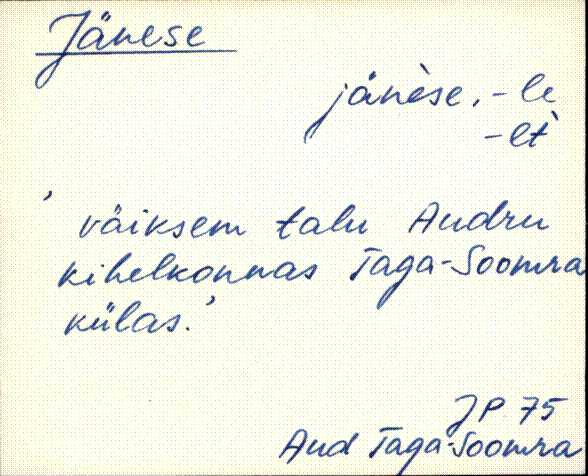 Jänese
jänèse, -le
-lt̀
' väiksem talu Audru
kihelkonnas Taga-Soomra
külas.'
JP 75
Aud Taga-Soomra